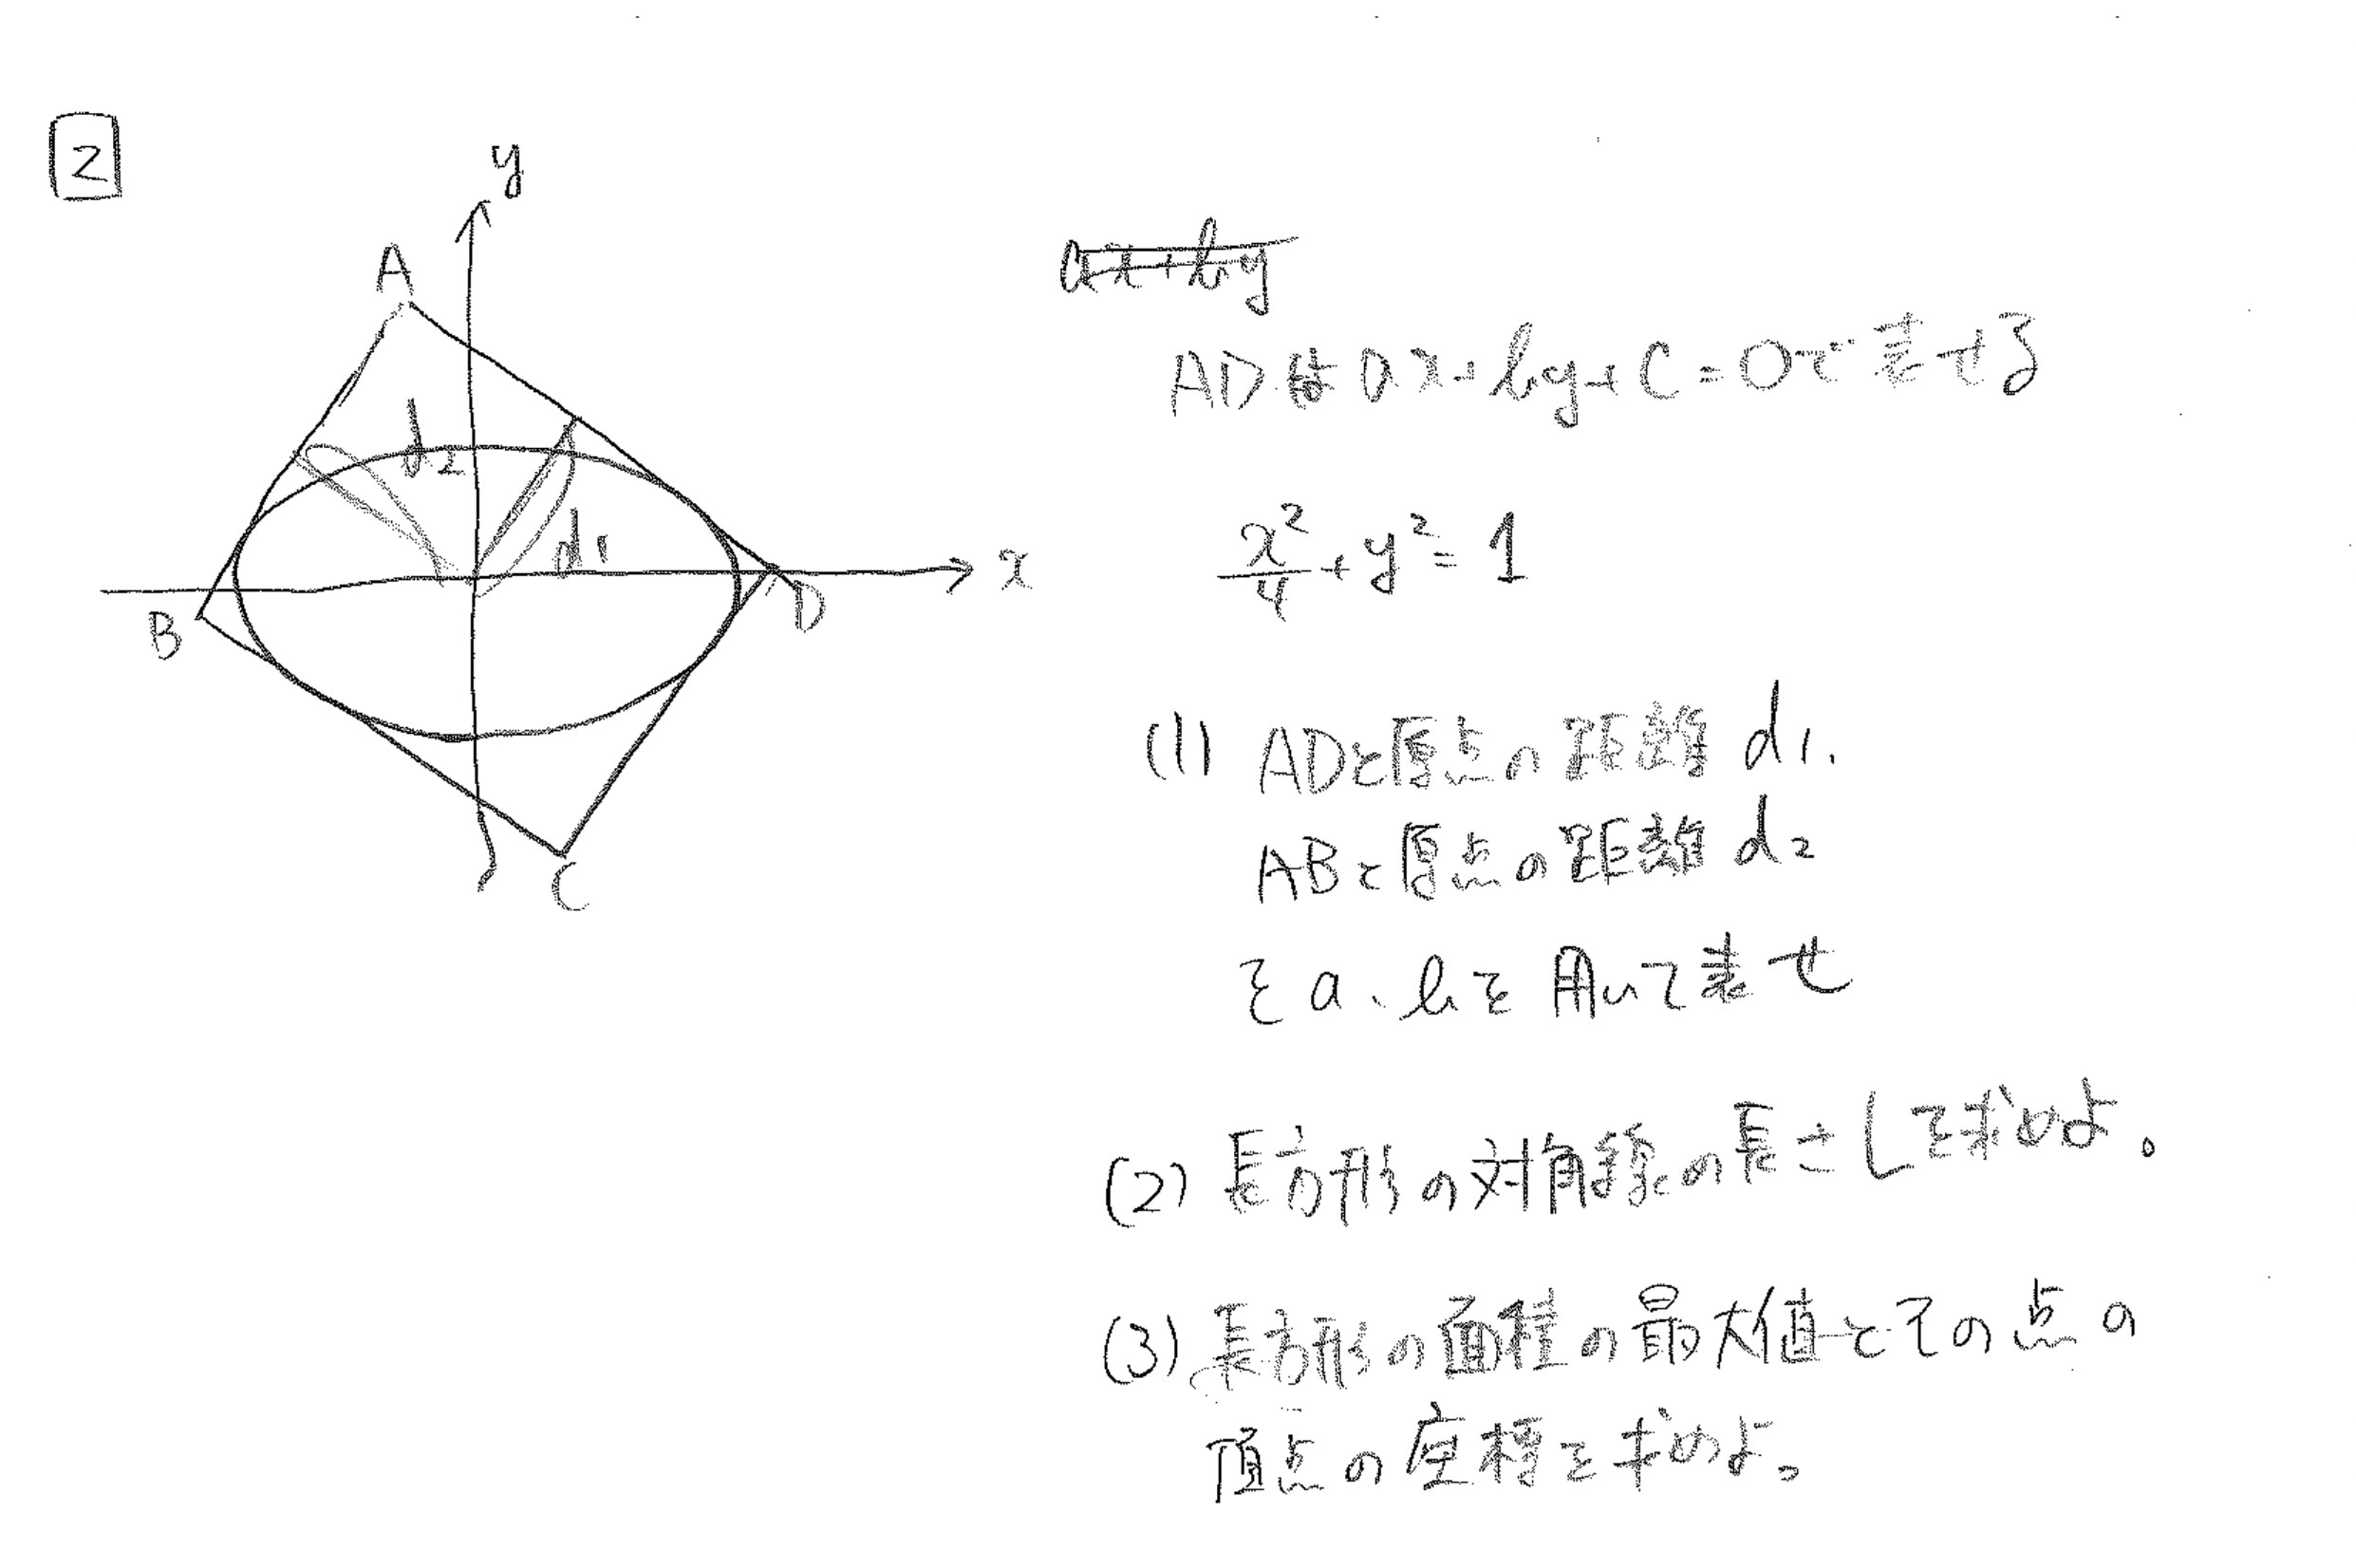 2
y
A
ax+by
ADは ax+by+c=0で表せる
d2
d1
x
B
D
C
x²/4+y²=1
(1) ADと原点の距離 d1.
ABと原点の距離 d2
を a、bを用いて表せ
(2) 長方形の対角線の長さ Lを求めよ。
(3) 長方形の面積の最大値とその点の
頂点の座標を求めよ。